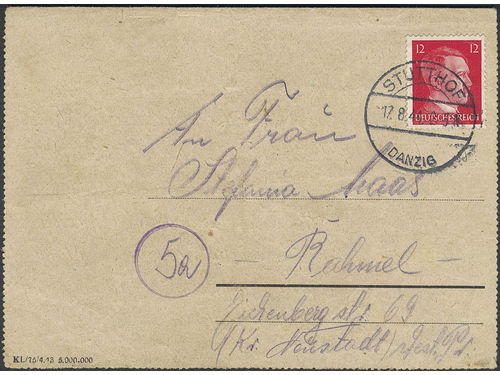 12 12
DEUTSCHES REICH
STUTTHOF
17.8.4
DANZIG
An Frau
Stefania Maas
5a
- Rahmel -
str. 69
(Kr. Neustadt) Westpr.
KL/75/4.43 5.000.000